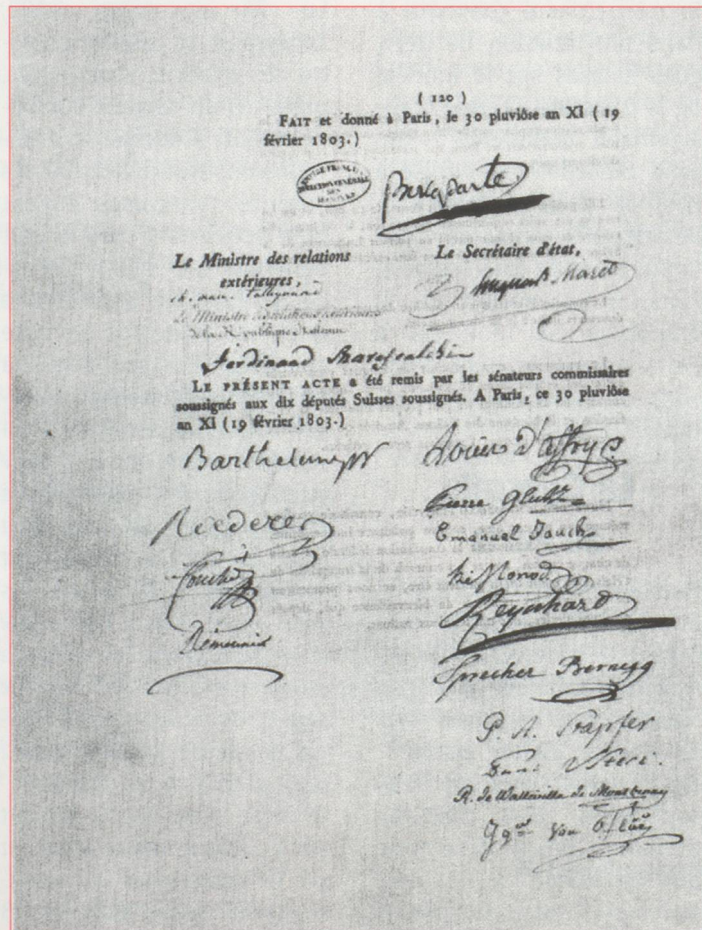 ( 120 )
FAIT et donné à Paris, le 30 pluviôse an XI ( 19
février 1803.)
Bonaparte
Le Ministre des relations
extérieures,
Le Secrétaire d'état,
Hugues B. Maret
ch. mau. Talleyrand
Le Ministre des relations extérieures
de la République Italienne
Ferdinand Marescalchi
LE PRÉSENT ACTE a été remis par les sénateurs commissaires
soussignés aux dix députés Suisses soussignés. A Paris, ce 30 pluviôse
an XI (19 février 1803.)
Barthelemy
Louis d'affry
Pierre Glutz
Roederer
Emanuel Jauch
Fouché
Monod
Reinhard
Démeunier
Sprecher Bernegg
P. A. Stapfer
Usteri.
R. de Watteville de Montbenay
von Flüe